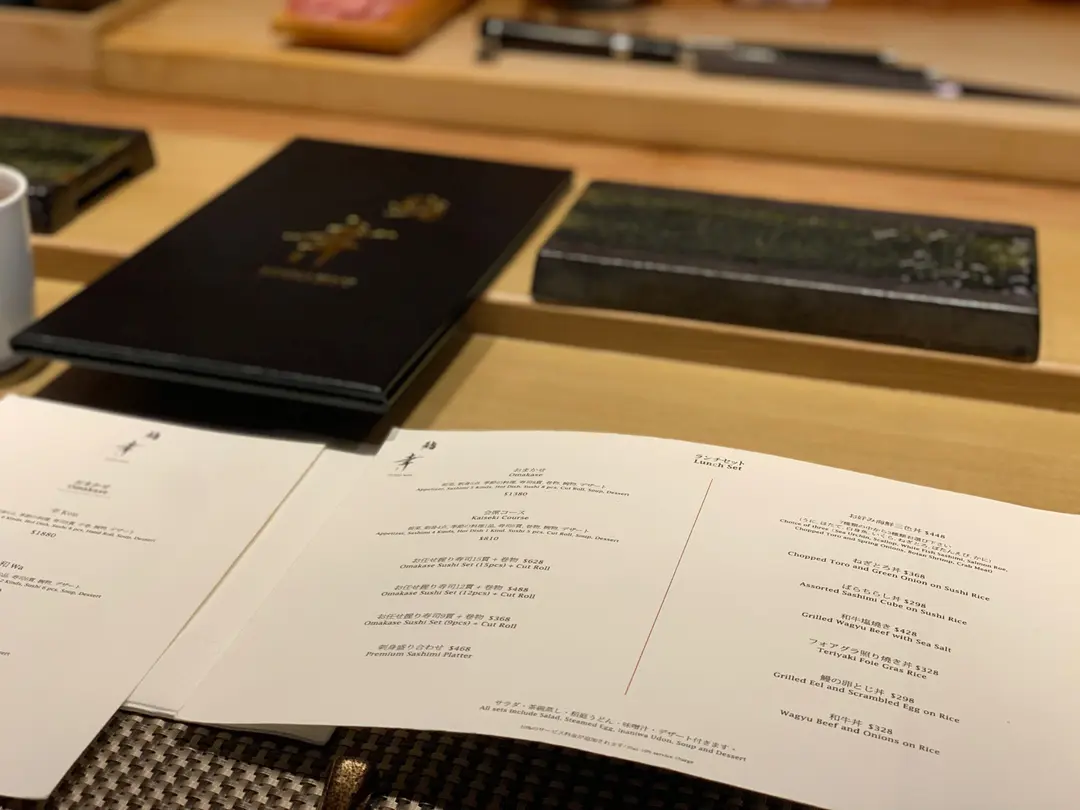 幸
おまかせ
Omakase
$1880
和 Wa
鮨
幸
おまかせ
Omakase
Appetizer, Sashimi 5 Kinds, Hot Dish, Sushi 8 pcs, Cut Roll, Soup, Dessert
$1380
会席コース
Kaiseki Course
Appetizer, Sashimi 4 Kinds, Hot Dish 1 Kind, Sushi 5 pcs, Cut Roll, Soup, Dessert
$810
お任せ握り寿司15貫 + 巻物 $628
Omakase Sushi Set (15pcs) + Cut Roll
お任せ握り寿司12貫 + 巻物 $488
Omakase Sushi Set (12pcs) + Cut Roll
お任せ握り寿司9貫 + 巻物 $368
Omakase Sushi Set (9pcs) + Cut Roll
刺身盛り合わせ $468
Premium Sashimi Platter
ランチセット
Lunch Set
お好み海鮮三色丼 $448
Choice of three (Sea Urchin, Scallop, White Fish, Salmon Roe,
Chopped Toro and Spring Onions, Botan Shrimp, Crab Meat)
ねぎとろ丼 $368
Chopped Toro and Green Onion on Sushi Rice
ばらちらし丼 $298
Assorted Sashimi Cube on Sushi Rice
和牛塩焼き $428
Grilled Wagyu Beef with Sea Salt
フォアグラ照り焼き丼 $328
Teriyaki Foie Gras Rice
鰻の卵とじ丼 $298
Grilled Eel and Scrambled Egg on Rice
和牛丼 $328
Wagyu Beef and Onions on Rice
サラダ・茶碗蒸し・稲庭うどん・味噌汁・デザート付きます。
All sets include Salad, Steamed Egg, Inaniwa Udon, Soup and Dessert